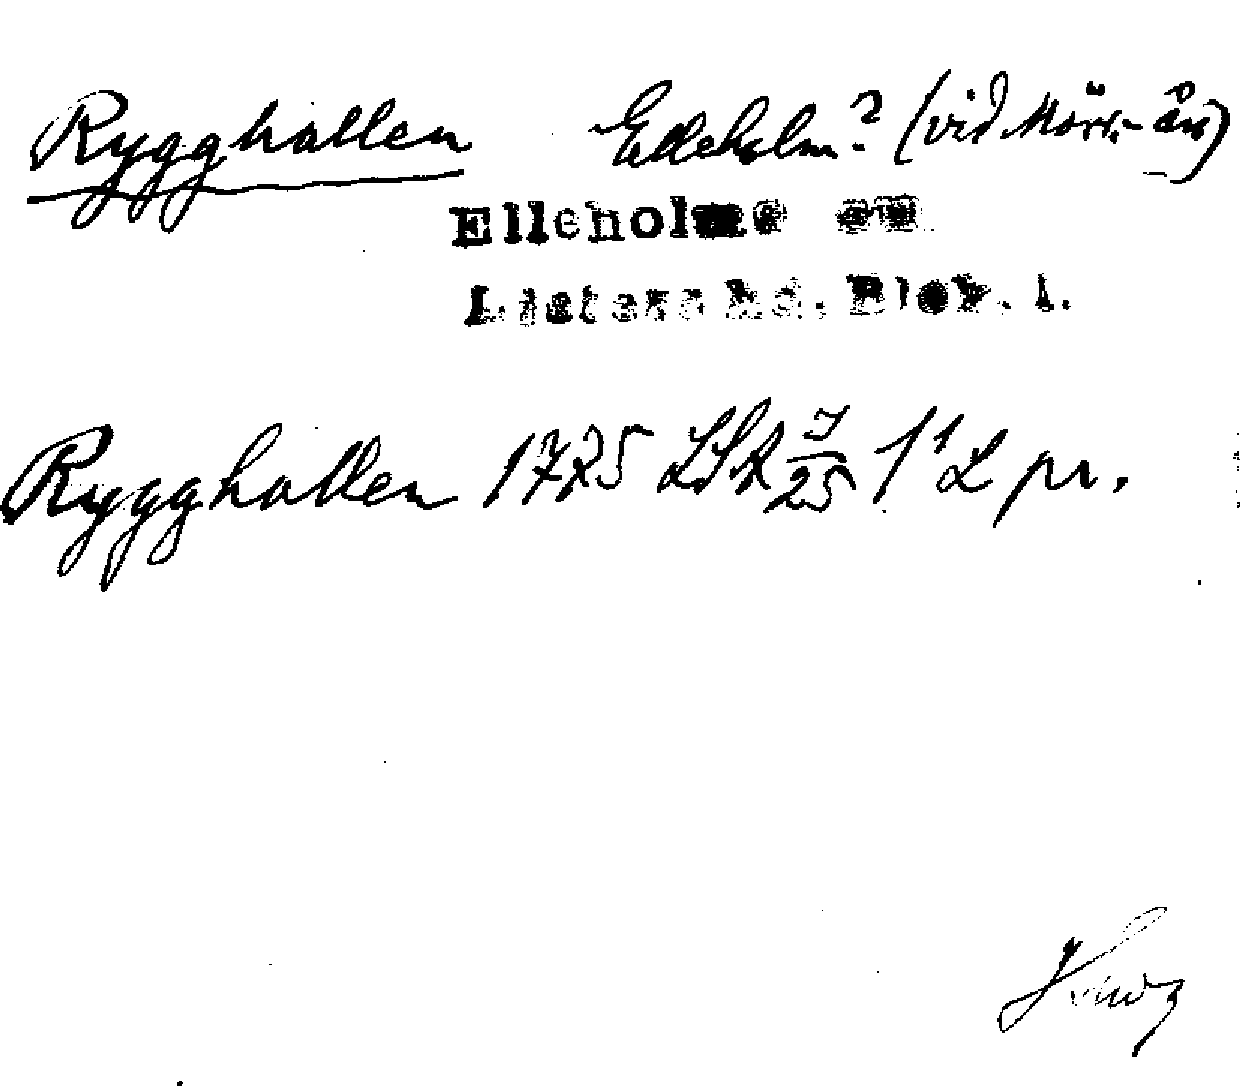 Rygghallen Elleholm? (vid Mörr.-ån)
Elleholms sn
Listers hd. Blek. l.
Rygghallen 1725 LSkr 7/25 1¹ L pr.